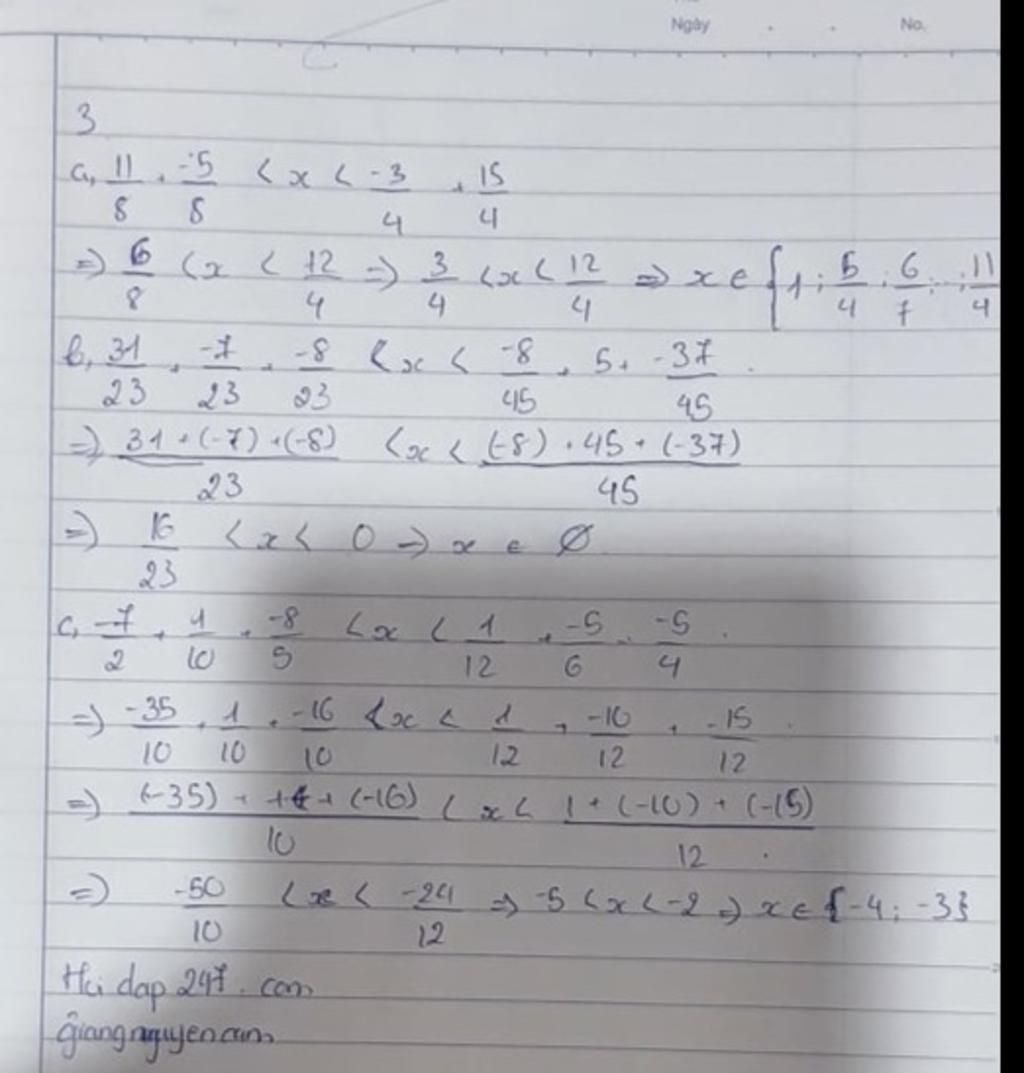 Ngày No.
3
a, 11/8 + -5/8 < x < -3/4 + 15/4
=> 6/8 < x < 12/4 => 3/4 < x < 12/4 => x ∈ {1; 5/4; 6/7; ..; 11/4
b, 31/23 + -7/23 + -8/23 < x < -8/45 + 5 + -37/45
=> 31 + (-7) + (-8)/23 < x < (-8) + 45 + (-37)/45
=> 16/23 < x < 0 => x ∈ ∅
c, -7/2 + 1/10 + -8/5 < x < 1/12 + -5/6 + -5/4
=> -35/10 + 1/10 + -16/10 < x < 1/12 + -10/12 + -15/12
=> (-35) + 1 + (-16)/10 < x < 1 + (-10) + (-15)/12
=> -50/10 < x < -24/12 => -5 < x < -2 => x ∈ {-4; -3}
Hoi dap 247.com
giangnguyencum